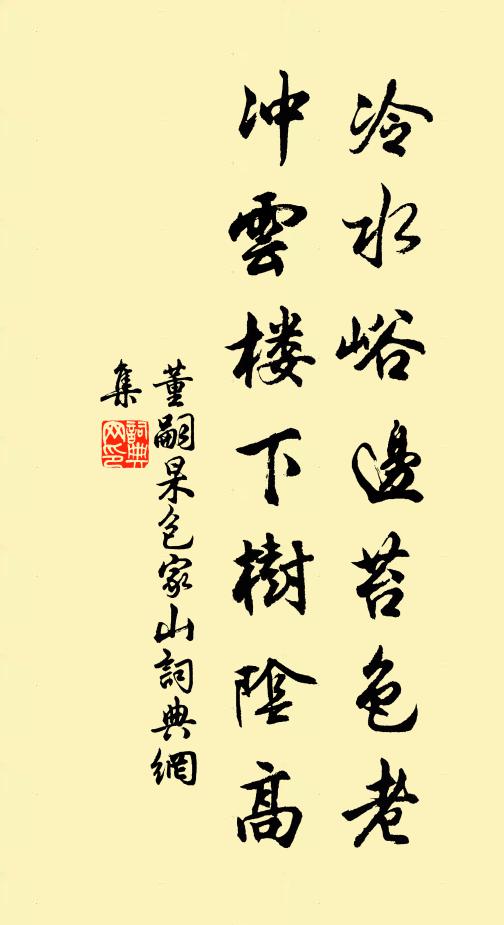 冷水峪邊苔色老
冲雲楼下樹陰高
董嗣杲包家山詞典網
集
詞典网印